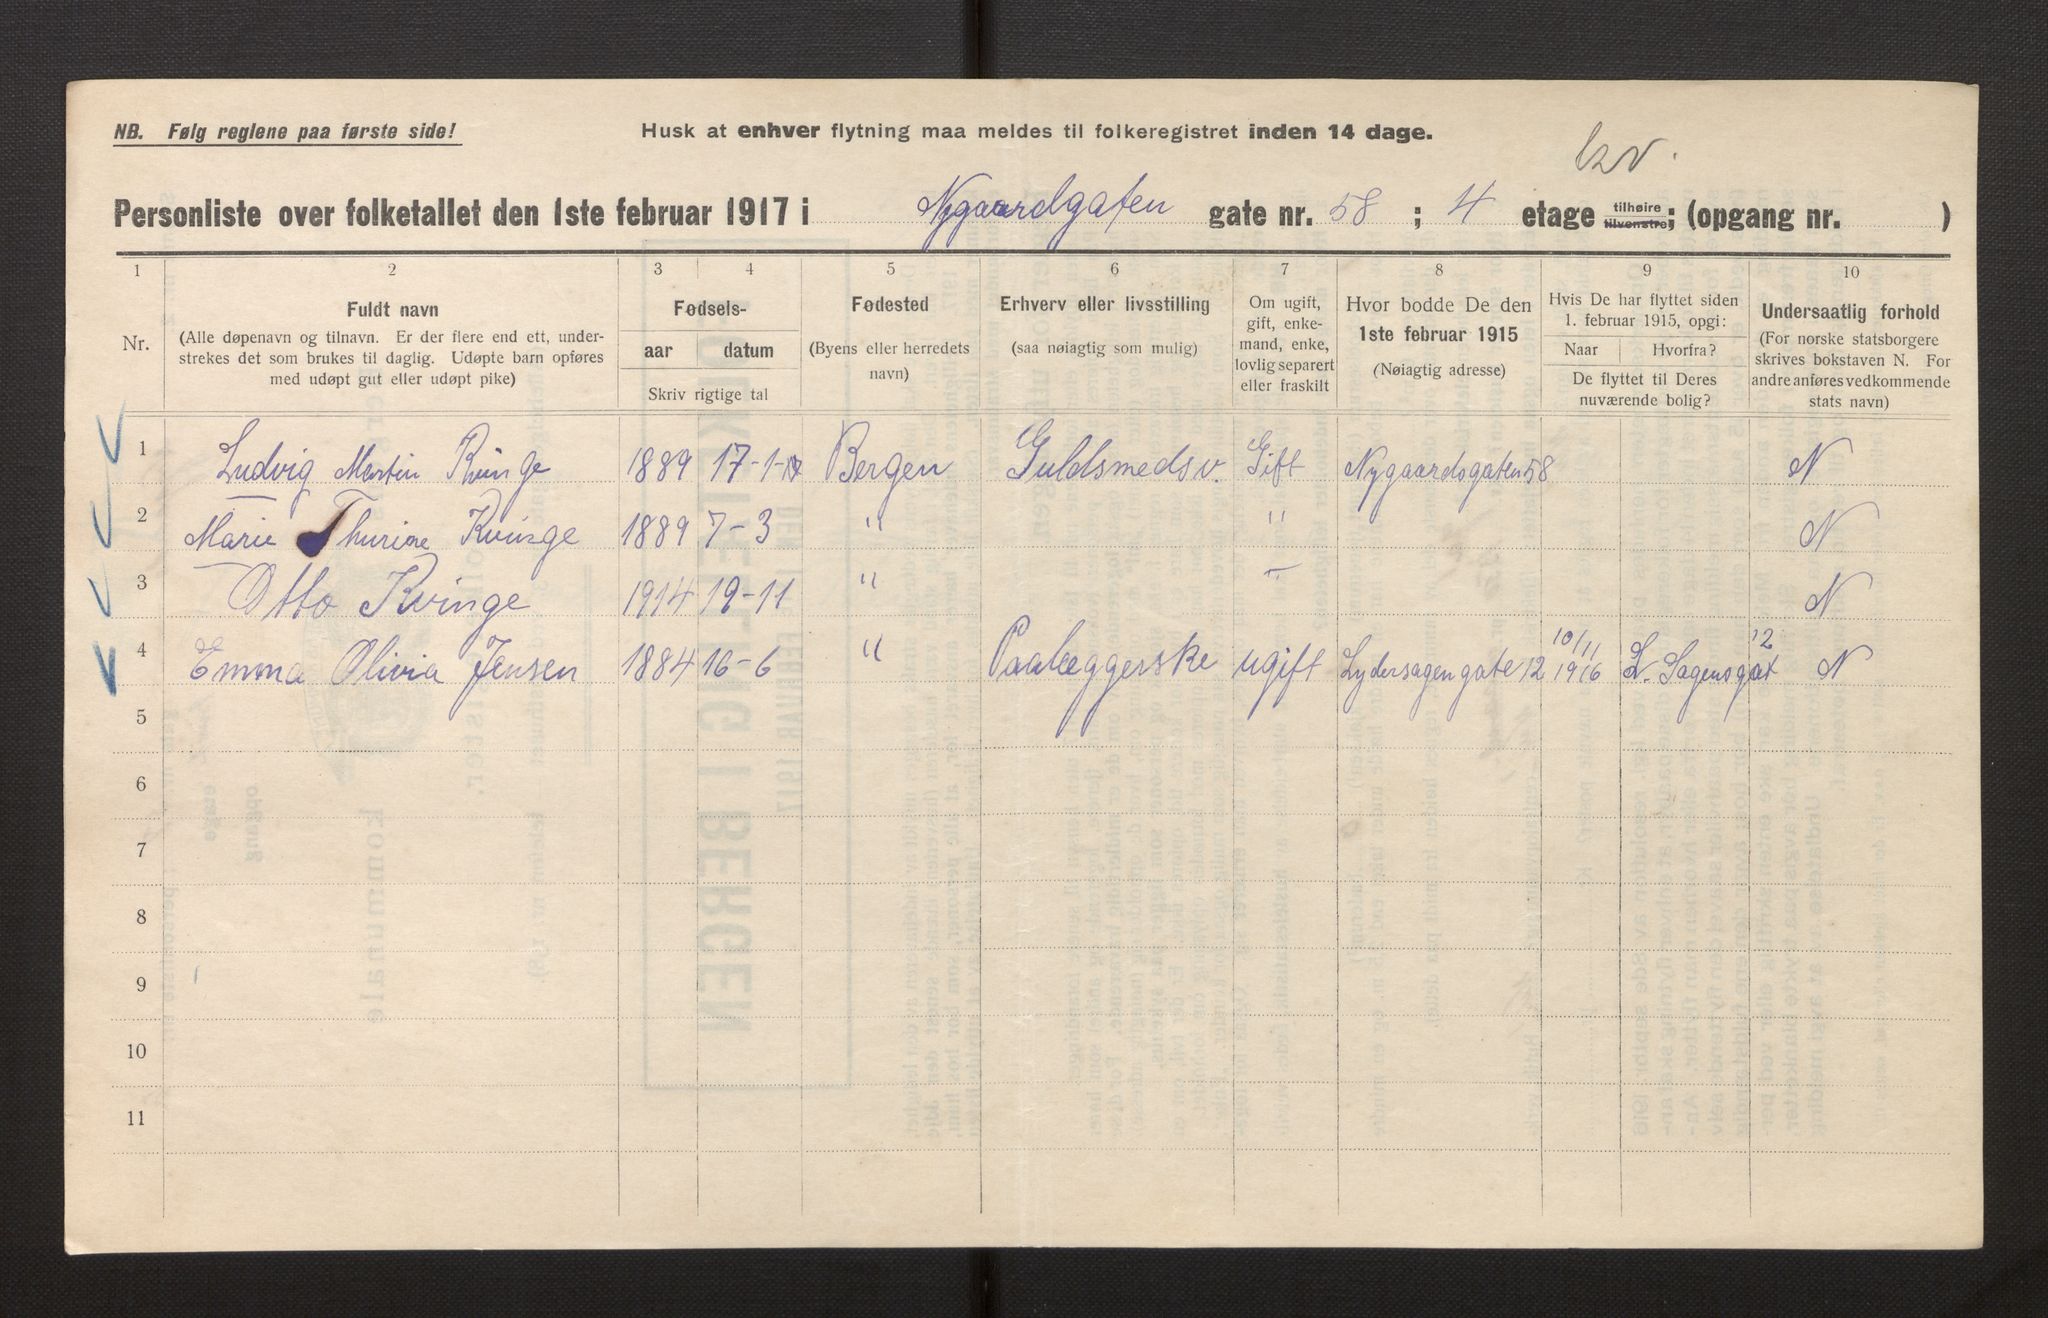 NB. Følg reglene paa første side!
Husk at enhver flytning maa meldes til folkeregistret inden 14 dage.
Personliste over folketallet den 1ste februar 1917 i Nygaardgaten gate nr. 58 ; 4 etage tilhøire tilvenstre; (opgang nr. )
1 2 3 4 5 6 7 8 9 10
Nr.
Fuldt navn
(Alle døpenavn og tilnavn. Er der flere end ett, under-
strekes det som brukes til daglig. Udøpte barn opføres
med udøpt gut eller udøpt pike)
Fødsels-
aar datum
Skriv rigtige tal
Fødested
(Byens eller herredets
navn)
Erhverv eller livsstilling
(saa nøiagtig som mulig)
Om ugift,
gift, enke-
mand, enke,
lovlig separert
eller fraskilt
Hvor bodde De den
1ste februar 1915
(Nøiagtig adresse)
Hvis De har flyttet siden
1. februar 1915, opgi:
Naar Hvorfra?
De flyttet til Deres
nuværende bolig?
Undersaatlig forhold
(For norske statsborgere
skrives bokstaven N. For
andre anføres vedkommende
stats navn)
1 Ludvig Martin Kvinge 1889 17-1- Bergen Guldsmedsv. Gift Nygaardsgaten 58 N
2 Marie Thurine Kvinge 1889 7-3 " " N
3 Otto Kvinge 1914 19-11 " - N
4 Emma Olivia Jensen 1884 16-6 " Paalæggerske ugift Lydersagengate 12 10/11 1916 L. Sagensgat 12 N
5
6
7
8
9
10
11